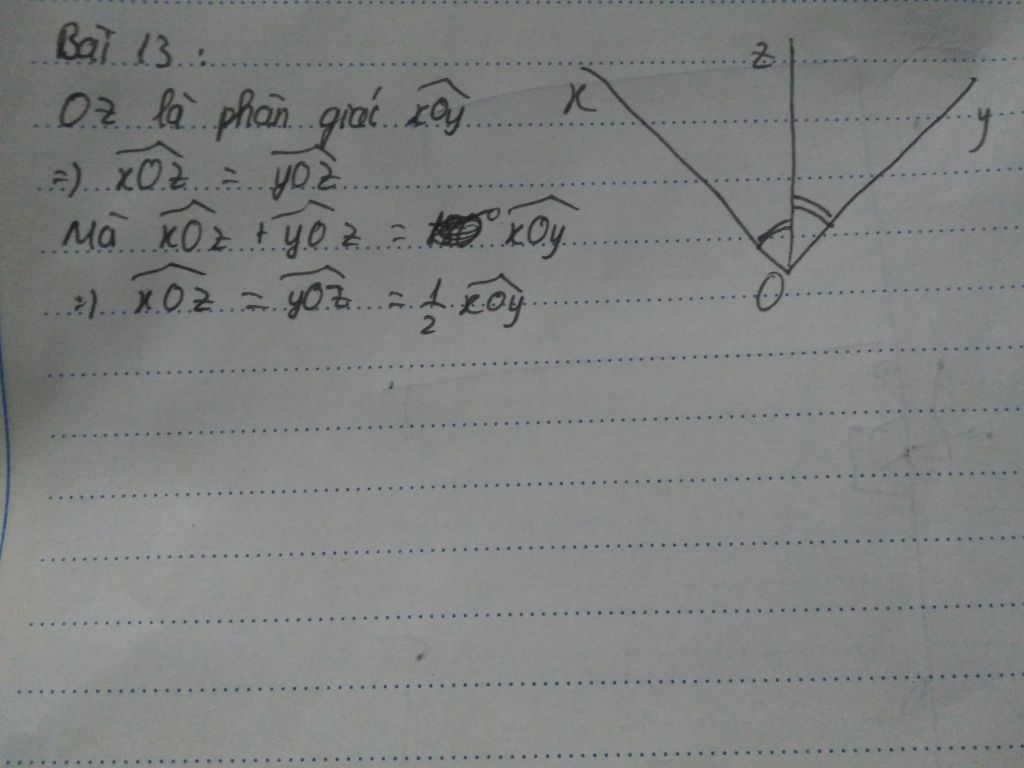 Bài 13 :
Oz là phân giác x̂Oy
=) x̂Oz = ŷOz
Mà x̂Oz + ŷOz = x̂Oy
=) x̂Oz = ŷOz = 1/2 x̂Oy
x
z
y
O